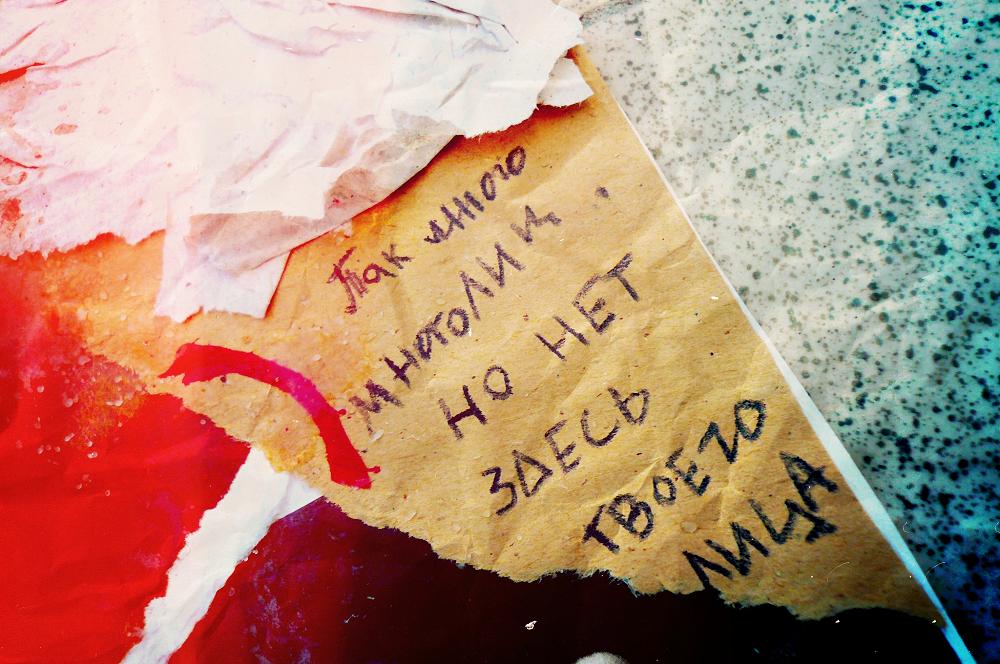 Так много
многолиц.
НО НЕТ
ЗДЕСЬ
ТВОЕГО
ЛИЦА